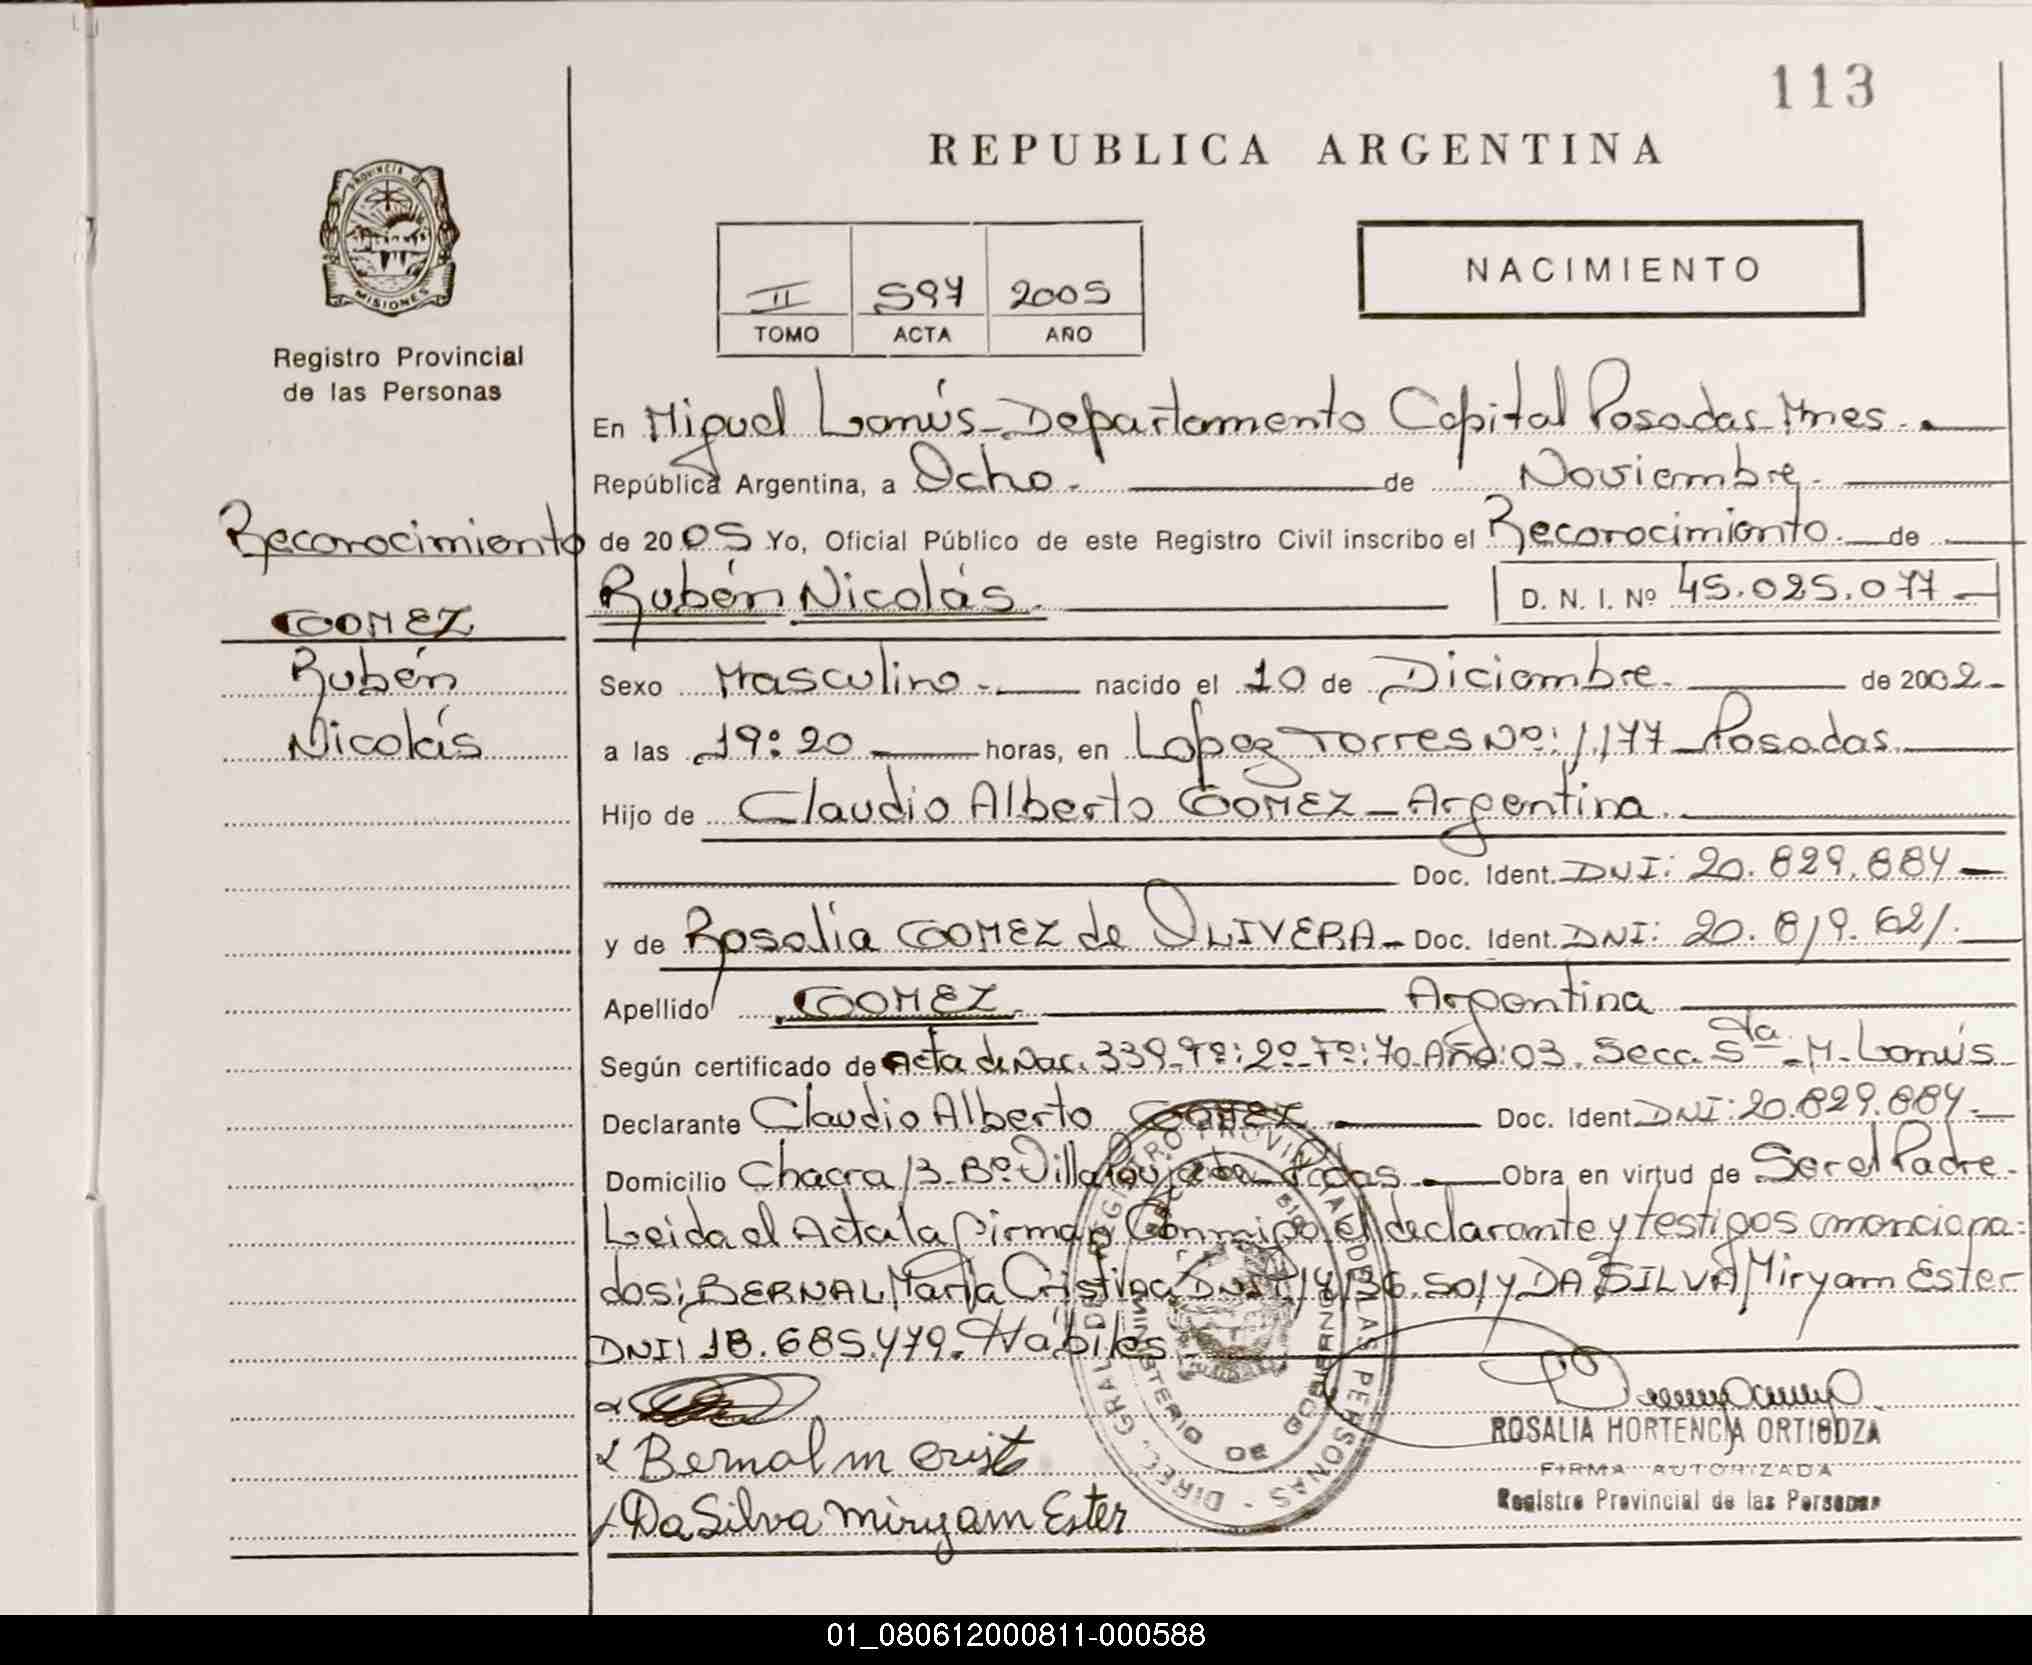 113
REPUBLICA ARGENTINA
PROVINCIA DE
MISIONES
Registro Provincial
de las Personas
II 594 2005
TOMO ACTA AÑO
NACIMIENTO
En Miguel Lanús-Departamento Capital Posadas-Mnes.
República Argentina, a Ocho.- de Noviembre.
Reconocimiento
de 2005 Yo, Oficial Público de este Registro Civil inscribo el Reconocimiento. de
GOMEZ
Rubén
Nicolás
Rubén Nicolás. D. N. I. Nº 45.025.077-
Sexo Masculino.- nacido el 10 de Diciembre. de 2002-
a las 19:20 horas, en Lopez Torres Nº: 1,177 Posadas.
Hijo de Claudio Alberto GOMEZ - Argentina.
Doc. Ident. DNI: 20.829.884-
y de Rosalia GOMEZ de OLIVERA- Doc. Ident. DNI: 20.819.621.
Apellido GOMEZ. Argentina
Según certificado de Acta de Nac. 339-Tº:2º-Fº:70-Año:03. Secc. 5ta.-M-Lanús
Declarante Claudio Alberto GOMEZ Doc. Ident. DNI:20.829.884-
Domicilio Chacra 13-Bº-Villa Obra en virtud de Ser el Padre.
Leida el Acta la firman Conmigo el declarante y testigos menciona=
dos: BERNAL Maria Cristina DNI y DA SILVA Miryam Ester
DNI: 18.685.479. Hábiles.
Bernal M Crist
Da Silva Miryam Ester
REGISTRO PROVINCIAL DE LAS PERSONAS - DIREC. GRAL. DE
MINISTERIO DE GOBIERNO
ROSALIA HORTENCIA ORTIGOZA
FIRMA AUTORIZADA
Registro Provincial de las Personas
01_080612000811-000588